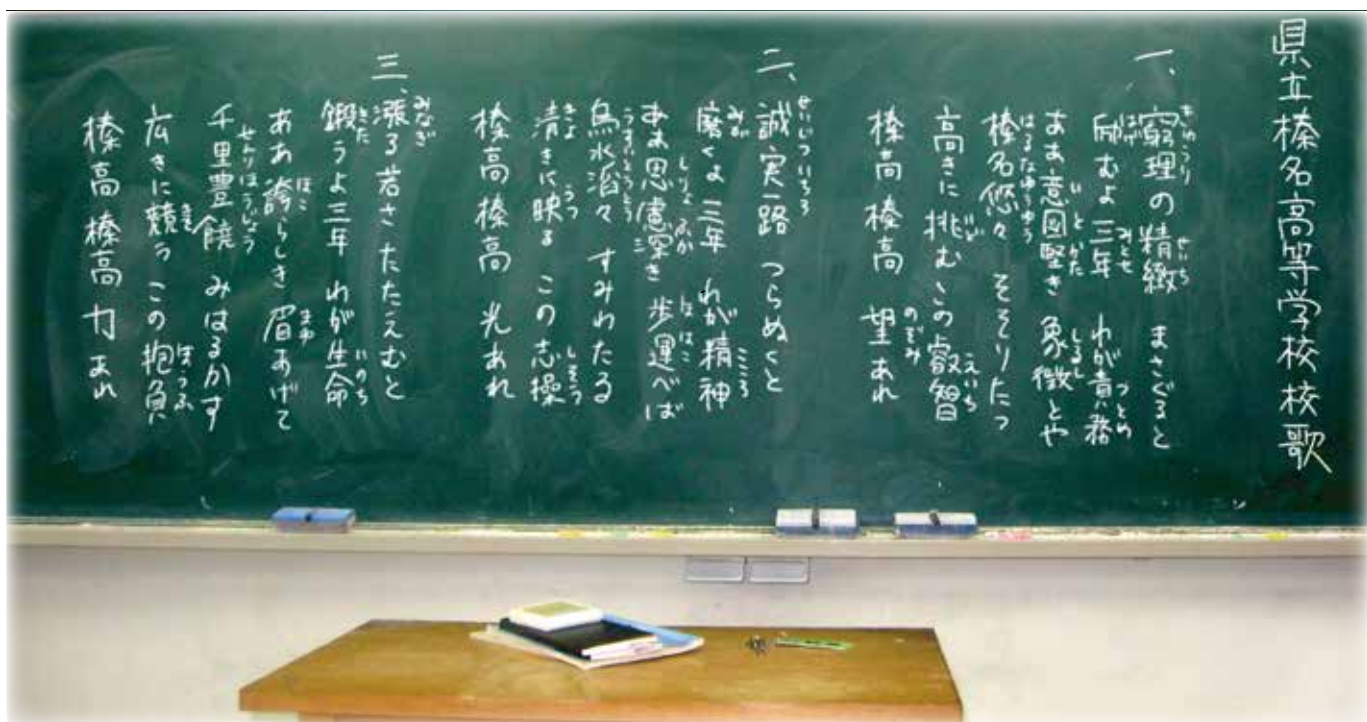 県立榛名高等学校校歌
一、
窮理の精緻 まさぐると
励むよ三年 わが責務
ああ意図堅き 象徴とや
榛名悠々 そそりたつ
高きに挑む この叡智
榛高 榛高 望あれ
二、
誠実一路 つらぬくと
磨くよ三年 わが精神
ああ思慮深き 歩運べば
烏水滔々 すみわたる
清きに映る この志操
榛高 榛高 光あれ
三、
漲る若さ たたえむと
鍛うよ三年 わが生命
ああ誇らしき 眉あげて
千里豊饒 みはるかす
広きに競う この抱負
榛高 榛高 力あれ